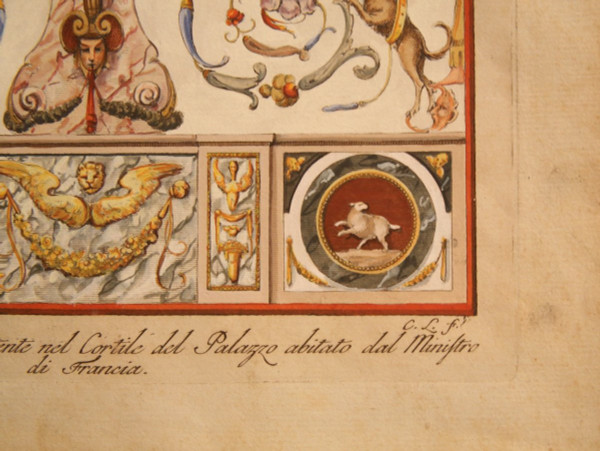 C. L. f.
ente nel Cortile del Palazzo abitato dal Miniſtro
di Francia.